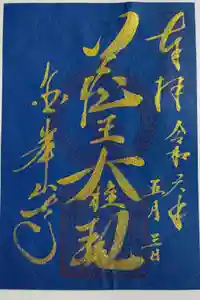 奉拝 令和元年
五月三日
蔵王大権現
金峯山寺